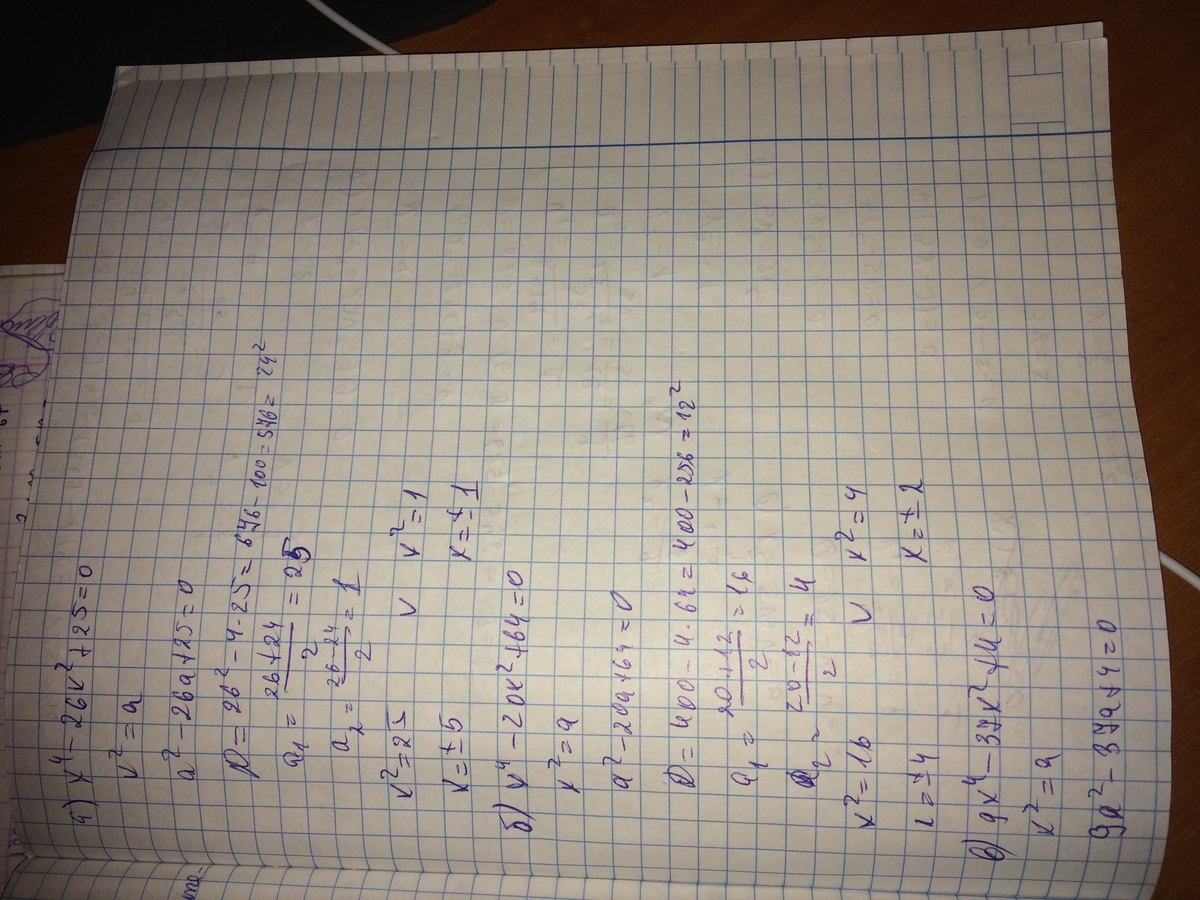 а) x⁴ - 26x² + 25 = 0
x² = a
a² - 26a + 25 = 0
D = 26² - 4·25 = 676 - 100 = 576 = 24²
a₁ = (26+24)/2 = 25
a₂ = (26-24)/2 = 1
x² = 25 V x² = 1
x = ±5 x = ±1
б) x⁴ - 20x² + 64 = 0
x² = a
a² - 20a + 64 = 0
D = 400 - 4·64 = 400 - 256 = 12²
a₁ = (20+12)/2 = 16
a₂ = (20-12)/2 = 4
x² = 16 V x² = 4
x = ±4 x = ±2
в) 9x⁴ - 37x² + 4 = 0
x² = a
9a² - 37a + 4 = 0